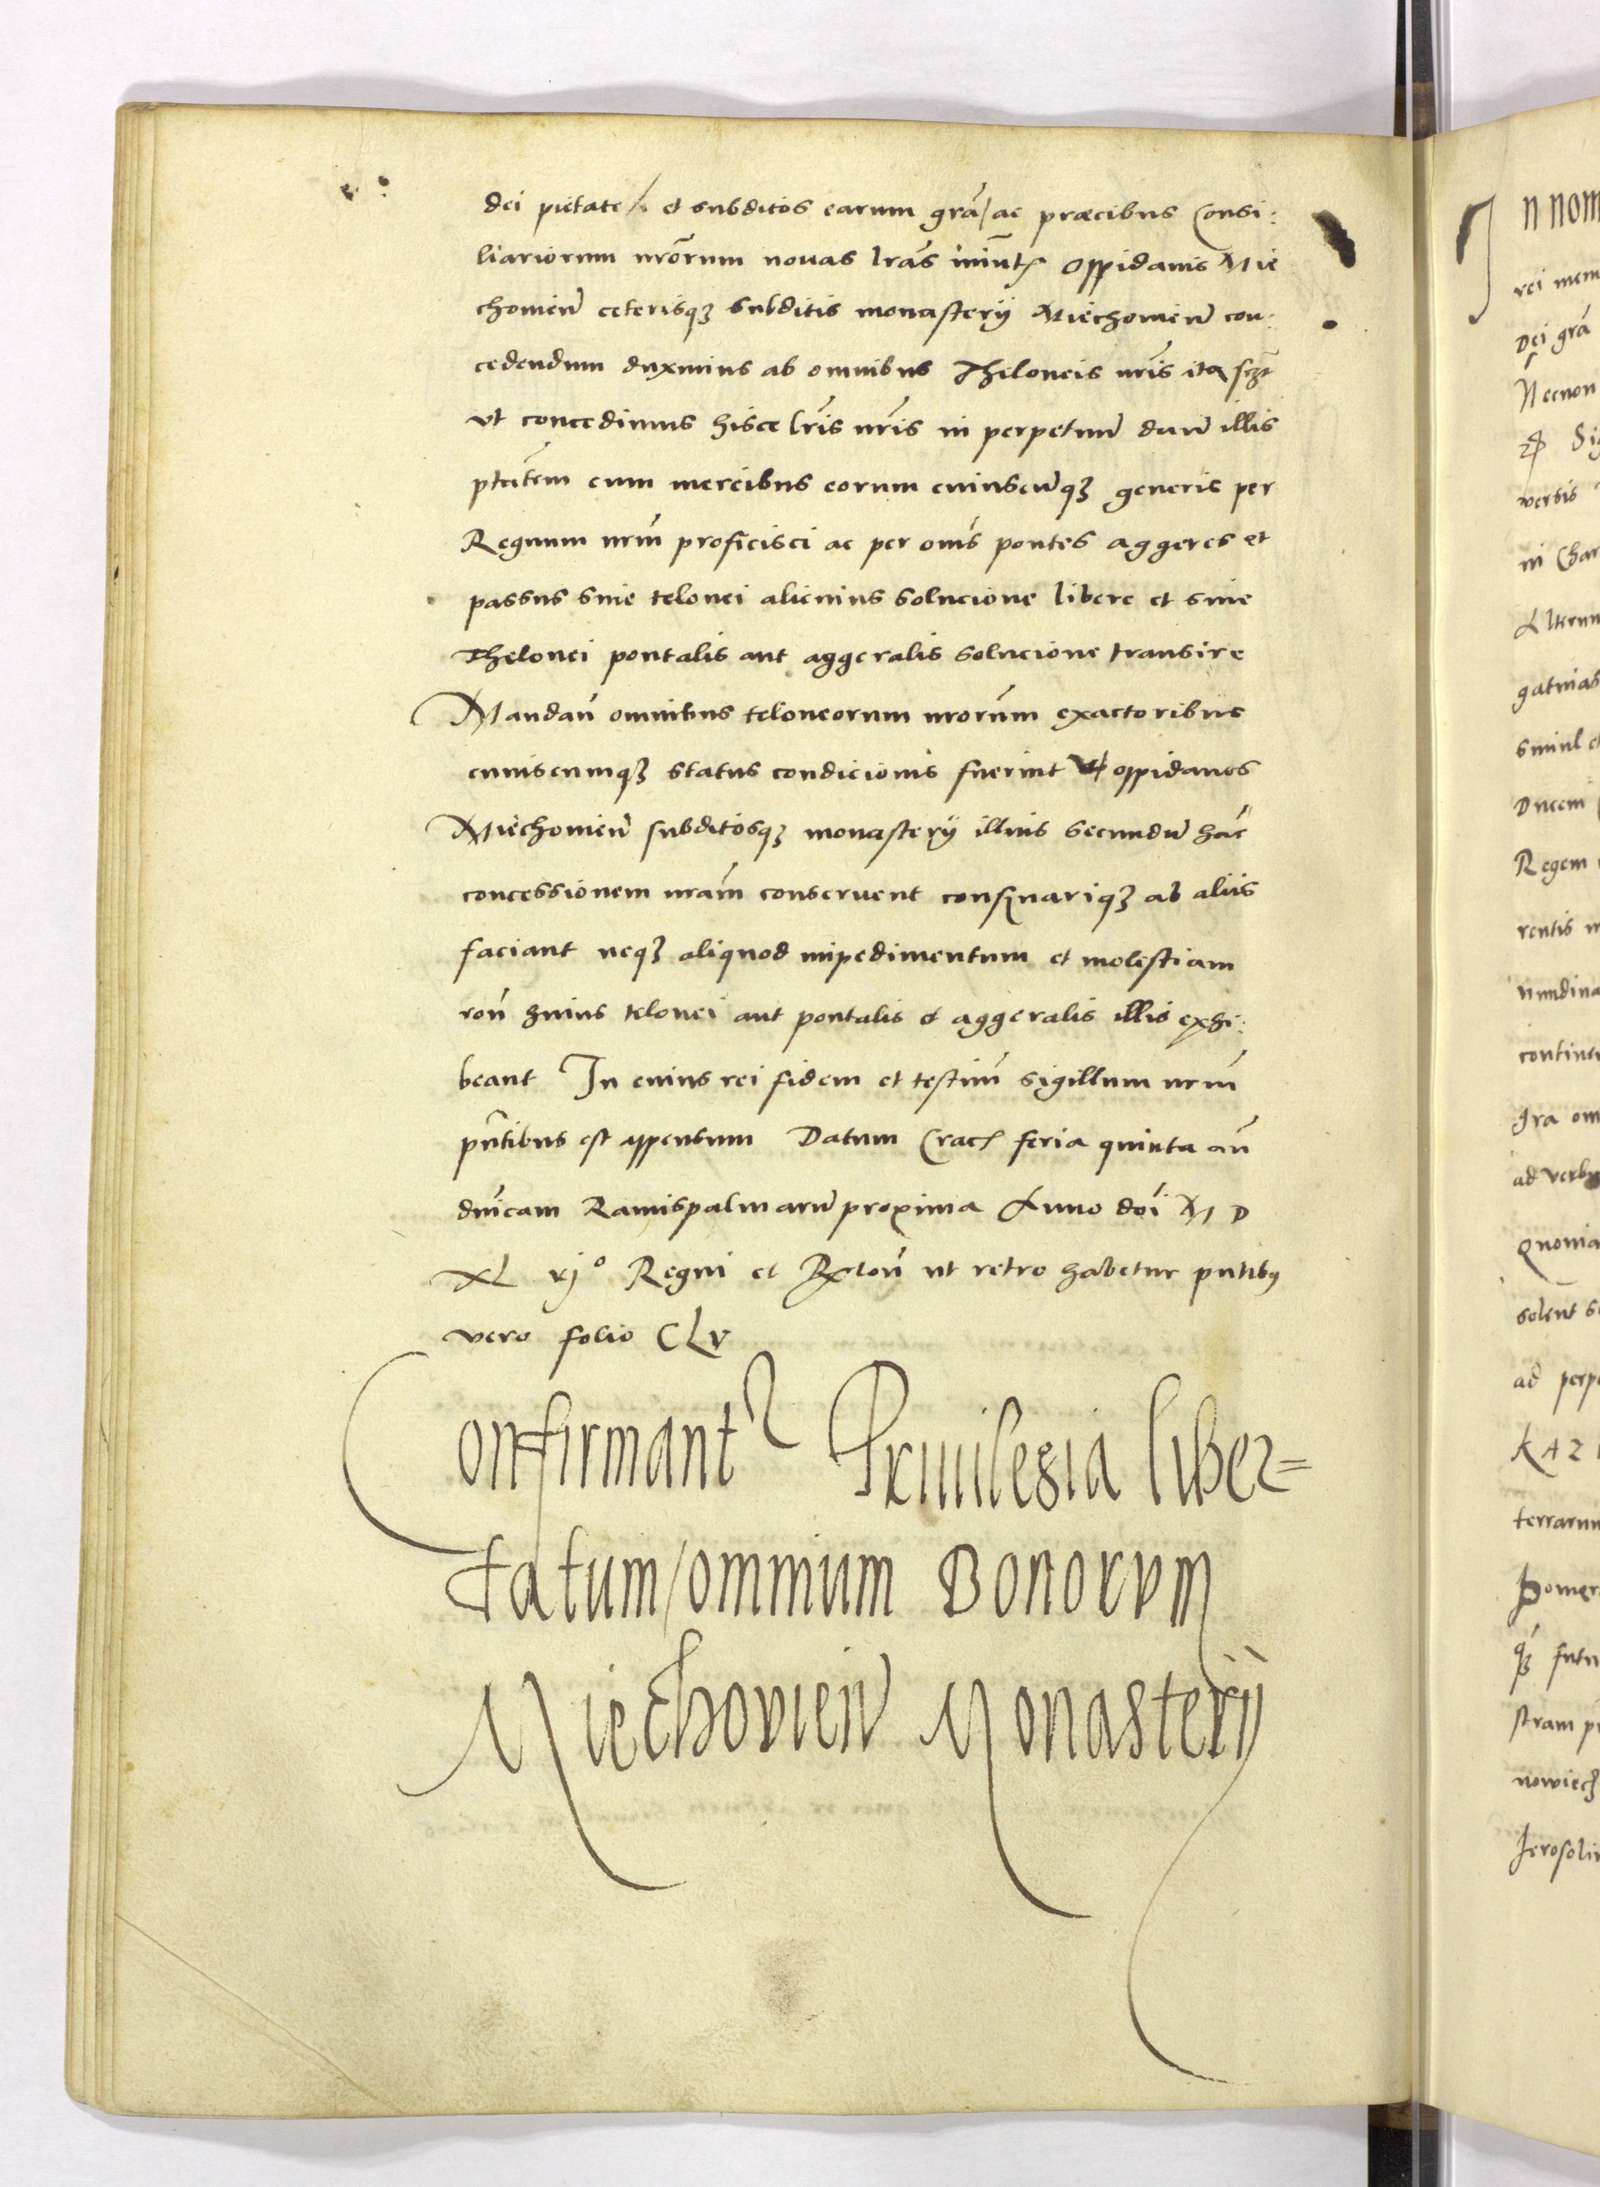 dei pietate / et subditos earum grã / ac præcibus Consi:
liariorum nrõrum nouas lrãs
oppidanis Mie
chouień ceterisqȝ subditis monasterÿ Miechouień con:
cedendum duximus ab omnibus Theloneis nrĩs ita
vt concedimus hisce lrĩs nrĩs in perpetuũ dañ illis
ptãtem cum mercibus eorum cuiuscũqȝ generis per
Regnum nrm̃ proficisci ac per oms̃ pontes aggeres et
passus sine telonei alicuius solucione libere et sine
Thelonei pontalis aut aggeralis solucione transire
Mandañ omnibus teloneorum nrorũm exactoribus
cuiuscumqȝ status condicionis fuerint vt oppidanos
Miechouień subditosqȝ monasterÿ illius secundũ hãc
concessionem nrãm conseruent conseruariqȝ ab aliis
faciant neqȝ aliquod impedimentum et molestiam
roñ huius telonei aut pontalis et aggeralis illis exhi:
beant In cuius rei fidem et testim̃ sigillum nrm̃
pñtibus est appensum Datum Crac feria quinta añ
dnĩcam Ramispalmarũ proxima Anno doĩ M D
XL vjº Regni et Rxloñ ut retro habetur pntibꝰ
vero folio CLv
Confirmantʳ Priuilegia liber=
tatum / omnium Bonorum
Miechouień Monasterÿ
n nom
rei mem
Dei grã
Necnon
Sig
versis
in Char
Alterum
gatuias
simul et
Ducem
Regem
rentis
nundina
contine
gra om
ad verbũ
Quonia
solent
ad perp
KAZI
terrarum
Pomer
futu
stram
nowiech
Ierosolim